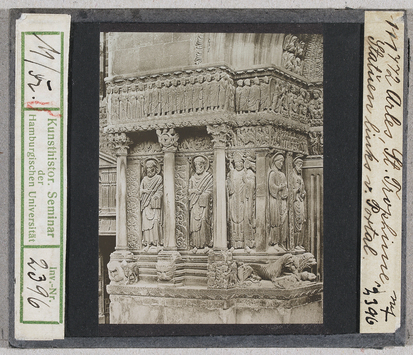 M/Fr.
Kunsthistor. Seminar
der
Hamburgischen Universität
Inv.-Nr.
2396
Arles, St. Trophime
Statuen links v. Portal.